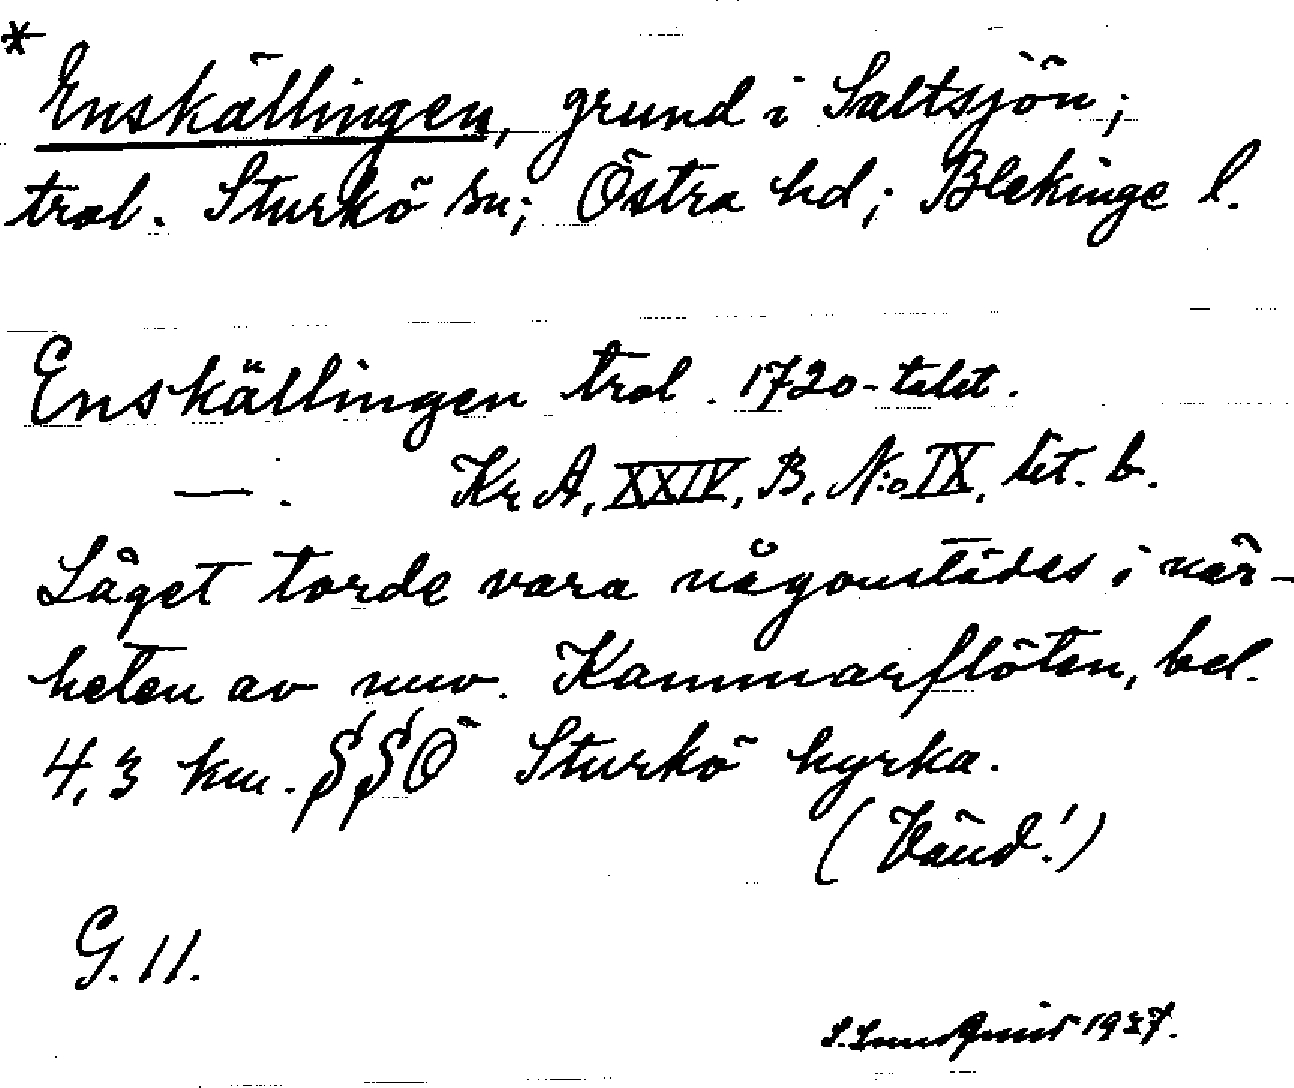 * Enskällingen, grund i Saltsjön;
trol. Sturkö sn; Östra hd; Blekinge l.
Enskällingen trol. 1720-talet.
—. Kr A, XXIV, B, N:o IX, lit. b.
Läget torde vara någonstädes i när-
heten av nuv. Kammarflöten, bel.
4,3 km. SSÖ Sturkö kyrka.
(Vänd!)
G. 11.
S. Lundquist 1927.